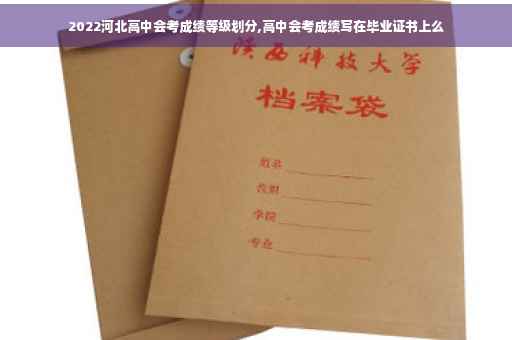 2022河北高中会考成绩等级划分,高中会考成绩写在毕业证书上么
陕西科技大学
档案袋
姓名
学院
专业